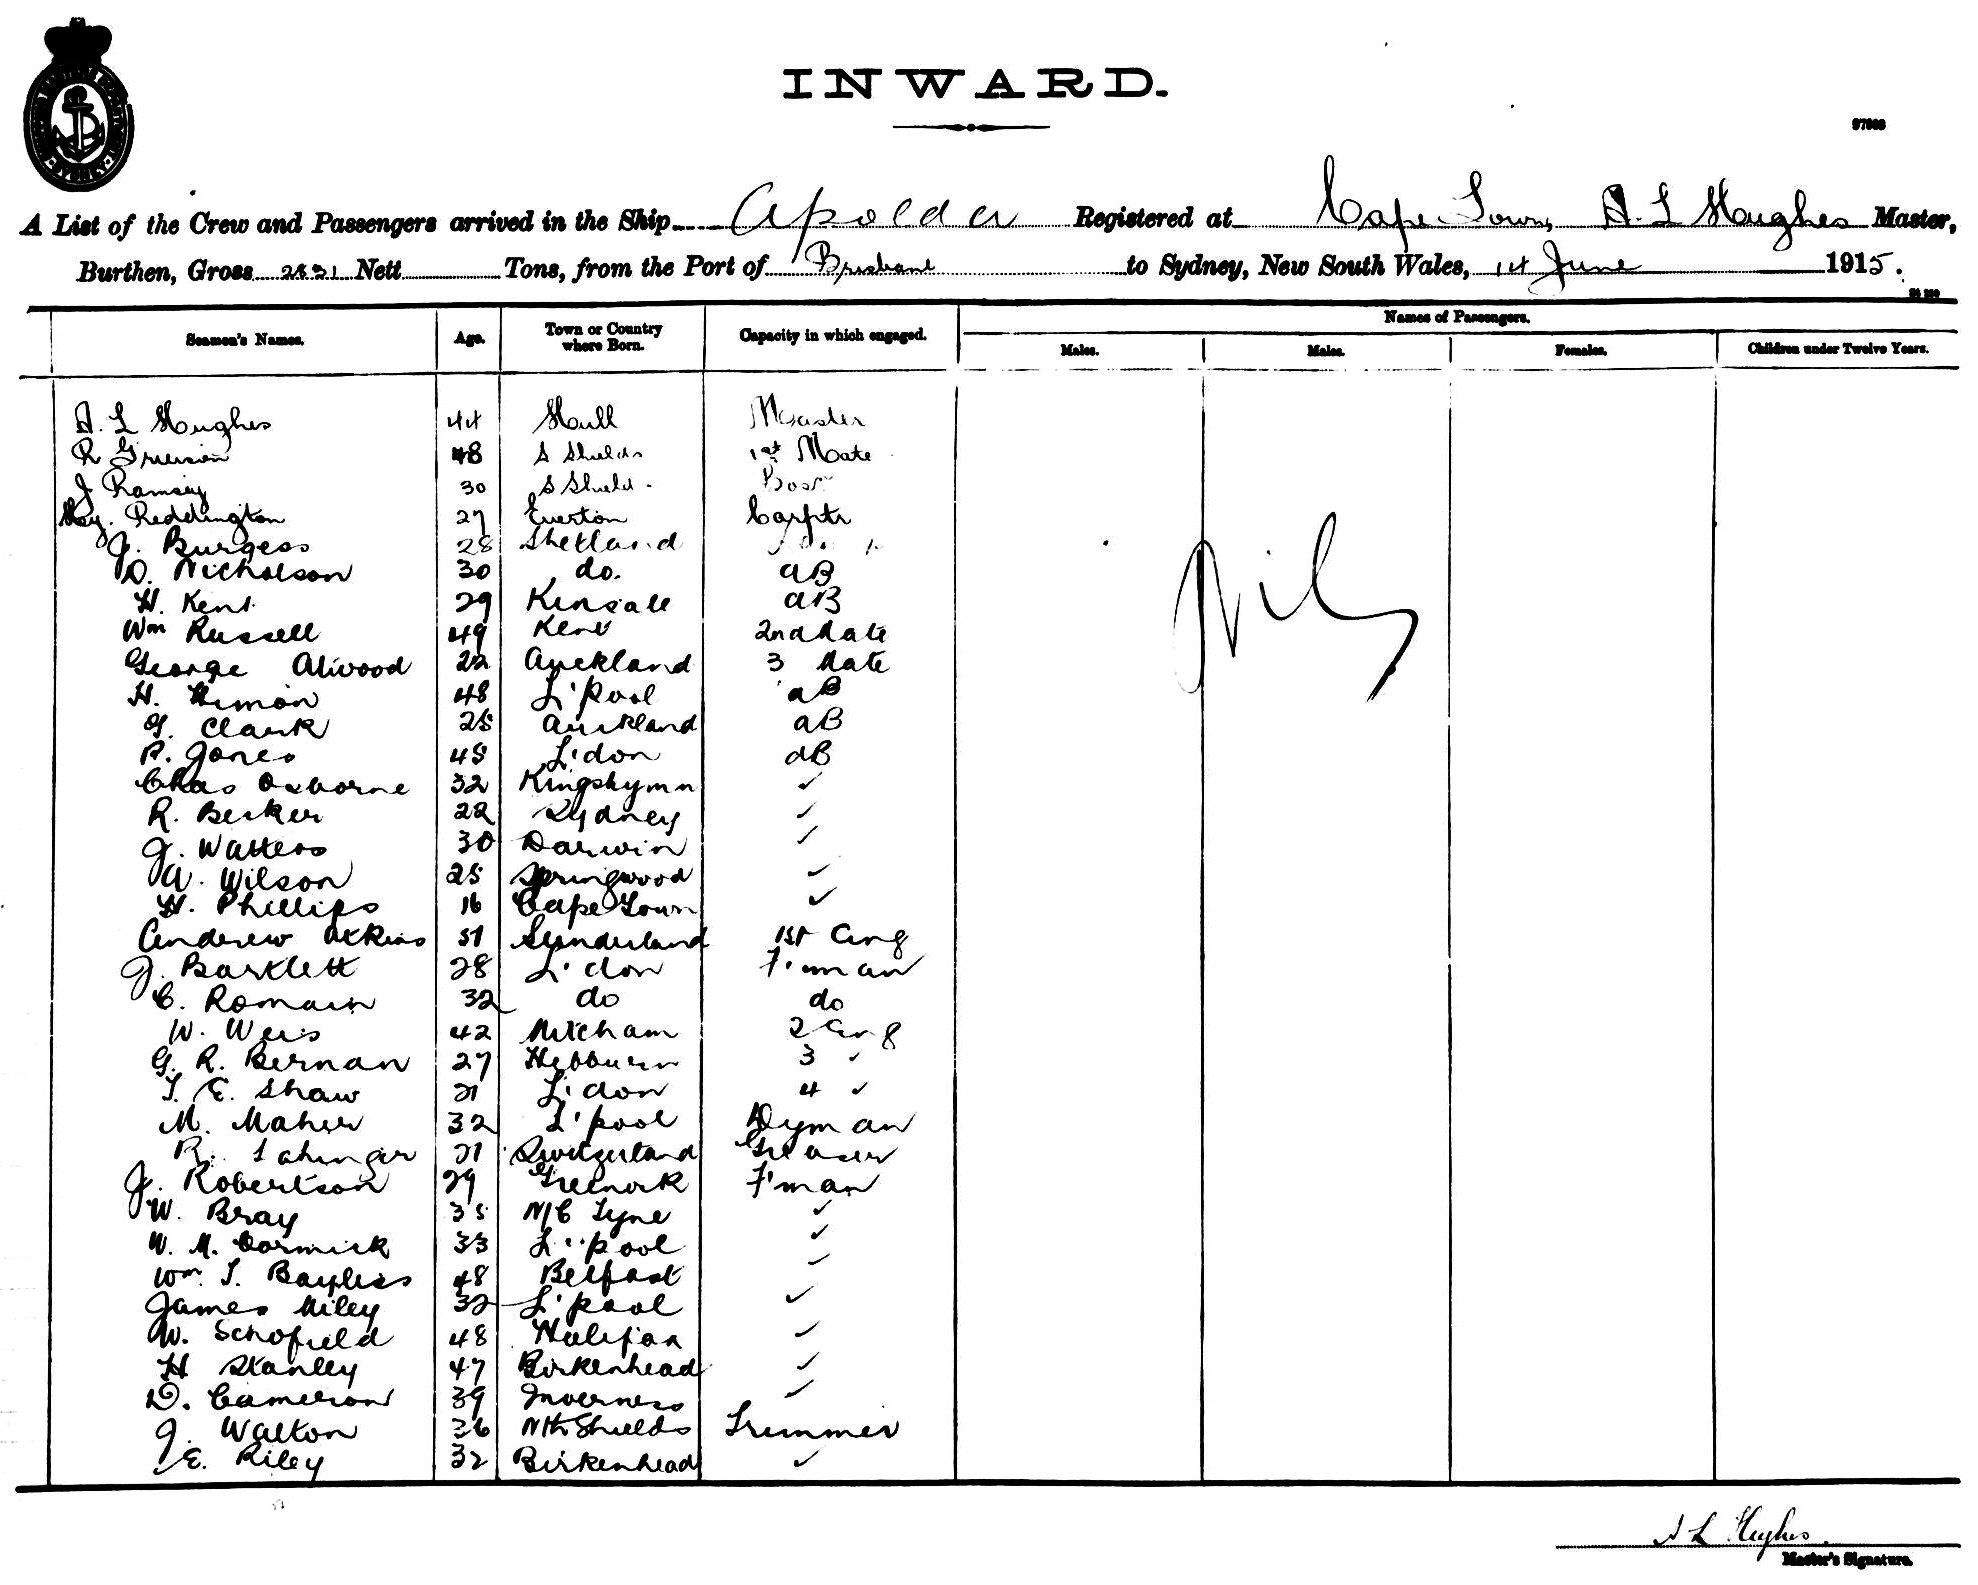 INWARD.
A List of the Crew and Passengers arrived in the Ship Apolda Registered at Cape Town, A. L Hughes Master,
Burthen, Gross Nett Tons, from the Port of Brisbane to Sydney, New South Wales, 1st June 1915.
Names of Passengers.
Seamen's Names. Age. Town or Country where Born. Capacity in which engaged. Males. Males. Females. Children under Twelve Years.
A. L Hughes 44 Hull Master
R Grierson 48 S Shields 1st Mate
J Ramsey 30 S Shields Bosn
Hy. Reddington 27 Everton Carptr
J. Burgess 28 Shetland
D. Nicholson 30 do. aB
H. Kent 29 Kinsale aB
Wm Russell 49 Kent 2nd Mate
George Atwood 22 Auckland 3 Mate
H. 48 L'pool aB
G. Clark 28 Auckland aB
R. Jones 48 L'don aB
Chas Osborne 32 Kingslynn ✓
R. Becker 22 Sydney ✓
J. Watters 30 Darwin ✓
W. Wilson 25 Springwood ✓
H. Phillips 16 Cape Town ✓
Andrew Atkins 51 Sunderland 1st Eng
J. Bartlett 28 L'don F'man
C. Romain 32 do do
W. Weis 42 Mitcham 2 Eng
G. R. Bernan 27 Hebburn 3 ✓
T. E. Shaw 21 L'don 4 ✓
M. Maher 32 L'pool Dyman
R. 21 Switzerland Greaser
J. Robertson 29 Greenock F'man
W. Bray 35 N/C Tyne ✓
W. M. Cormick 33 L'pool ✓
Wm. T. Bayliss 48 Belfast ✓
James Miley 32 L'pool ✓
W. Schofield 48 Halifax ✓
H Stanley 47 Birkenhead ✓
D. Cameron 39 Inverness ✓
J. Walton 36 Nth Shields Trimmer
E. Riley 32 Birkenhead ✓
Nil
A L Hughes
Master's Signature.